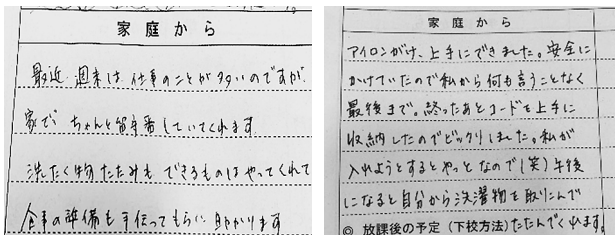 家庭から
最近、週末は仕事のことが多いのですが、
家で、ちゃんと留守番していてくれます。
洗たく物たたみも、できるものはやってくれて
食事の準備も手伝ってもらい、助かります
家庭から
アイロンがけ、上手にできました。安全に
かけていたので私から何も言うことなく
最後まで。終ったあとコードを上手に
収納したのでビックリしました。私が
入れようとするとやっとなので(笑)午後
になると自分から洗濯物を取りこんで
◎ 放課後の予定(下校方法)たたんでくれます。